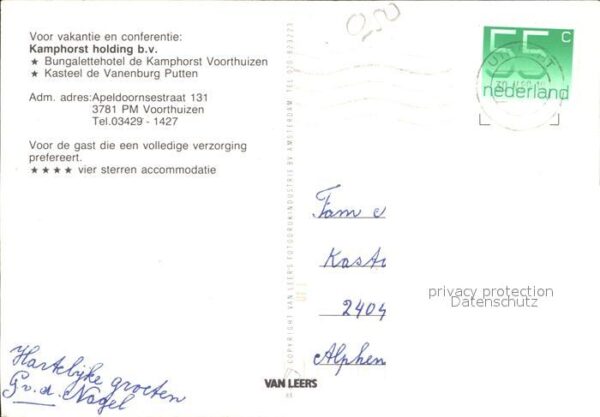 Voor vakantie en conferentie:
Kamphorst holding b.v.
★ Bungalettehotel de Kamphorst Voorthuizen
★ Kasteel de Vanenburg Putten
Adm. adres: Apeldoornsestraat 131
3781 PM Voorthuizen
Tel. 03429 - 1427
Voor de gast die een volledige verzorging
prefereert.
★★★★ vier sterren accommodatie
Hartelijke groeten
G v. d. Nagel
COPYRIGHT VAN LEERS FOTODRUKINDUSTRIE BV AMSTERDAM
VAN LEERS
55 c
nederland
Fam
2404
Alphen
privacy protection
Datenschutz